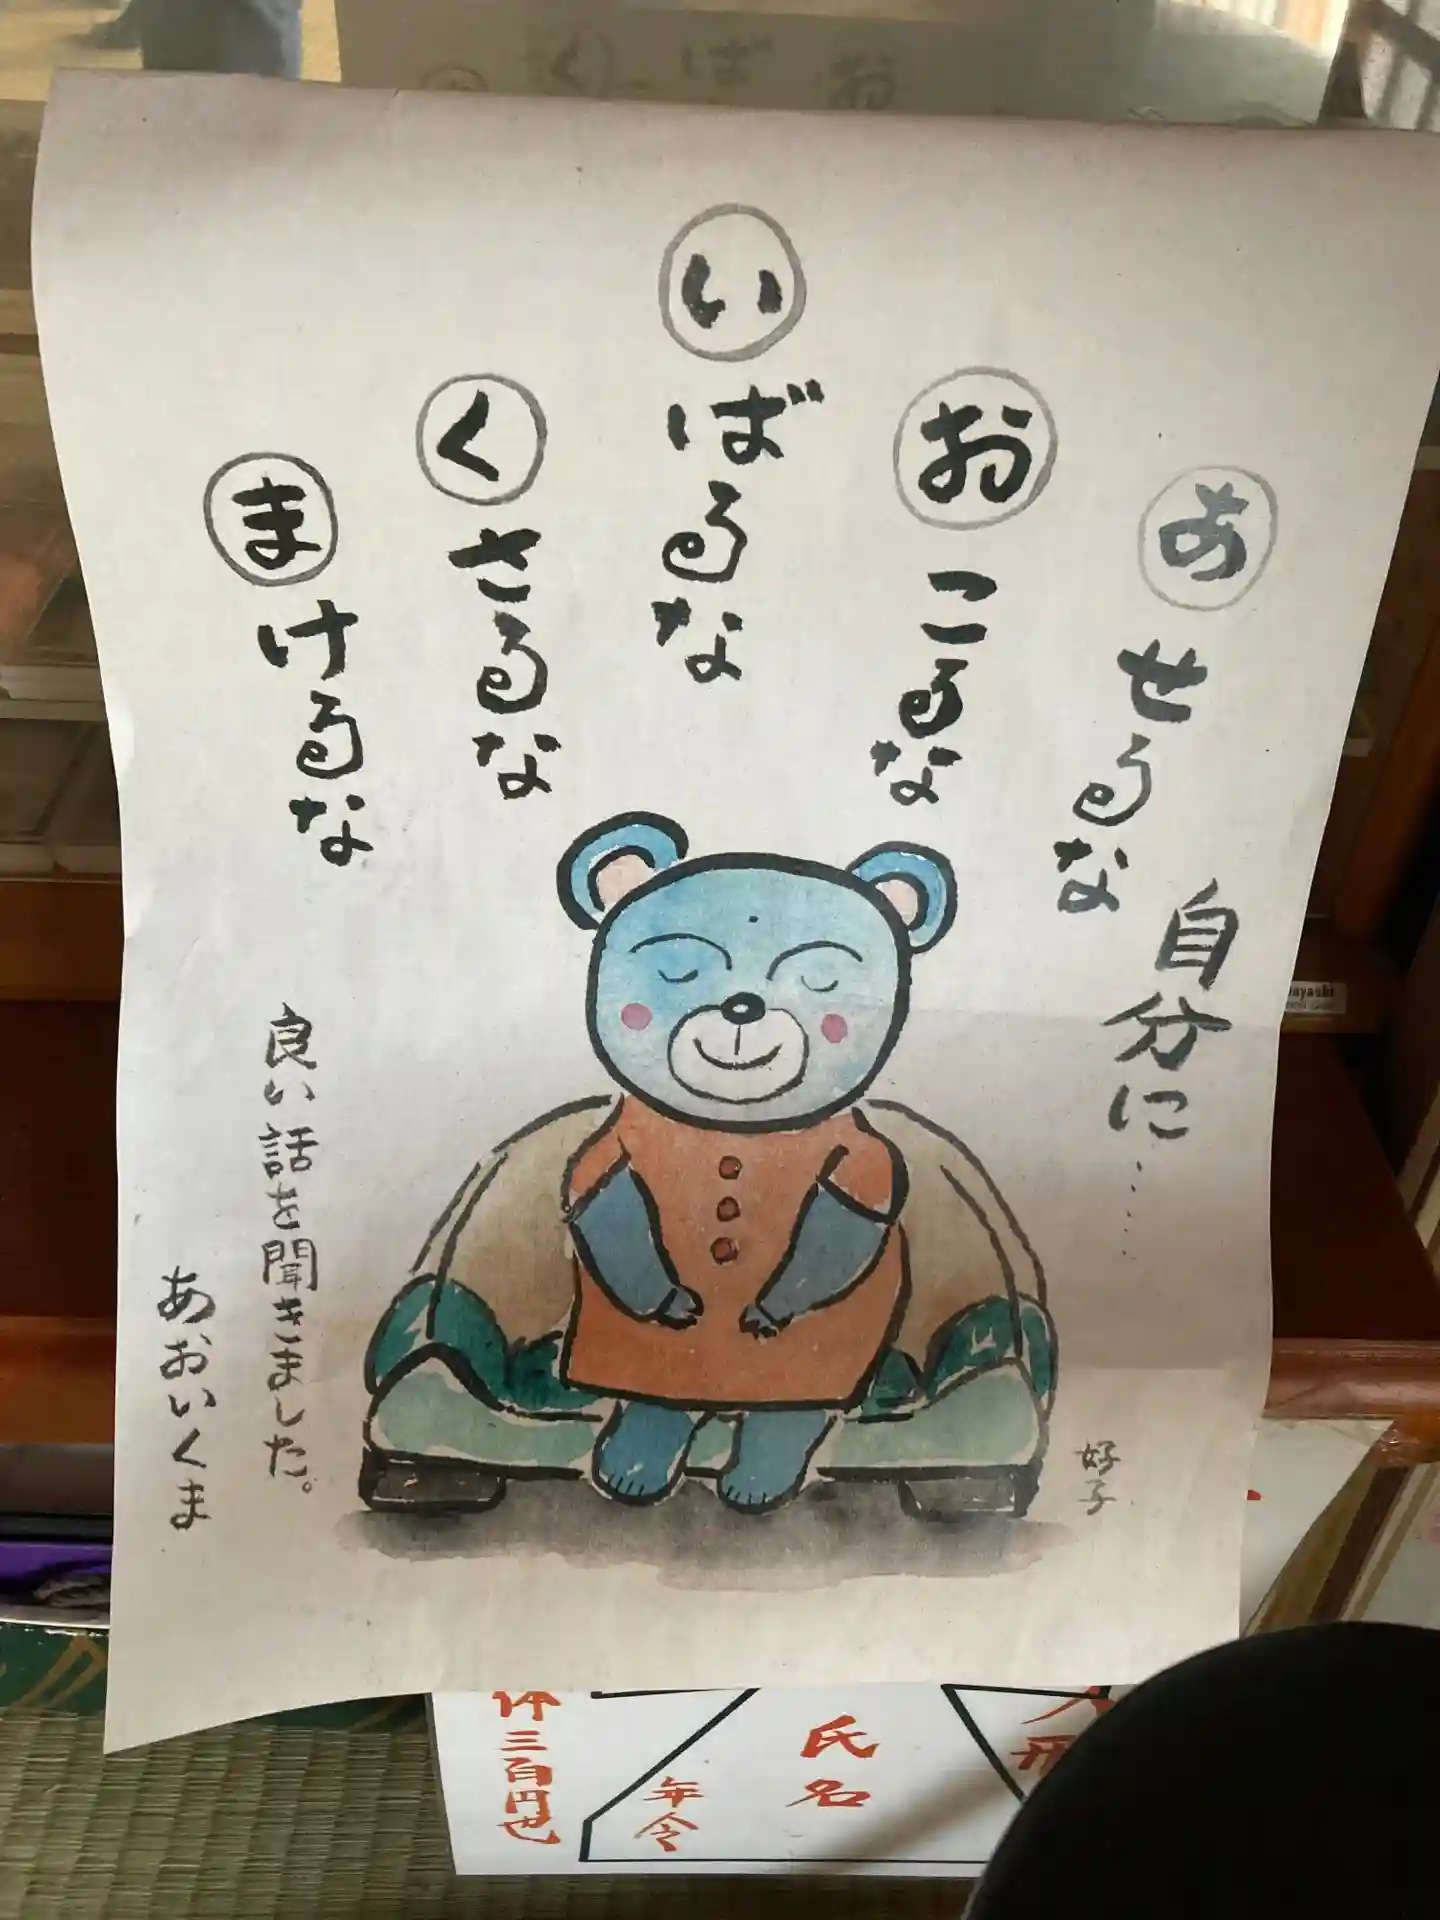 あせるな
おこるな
いばるな
くさるな
まけるな
自分に……
良い話を聞きました。
あおいくま
好子
氏名
年令
体三百円也
人形